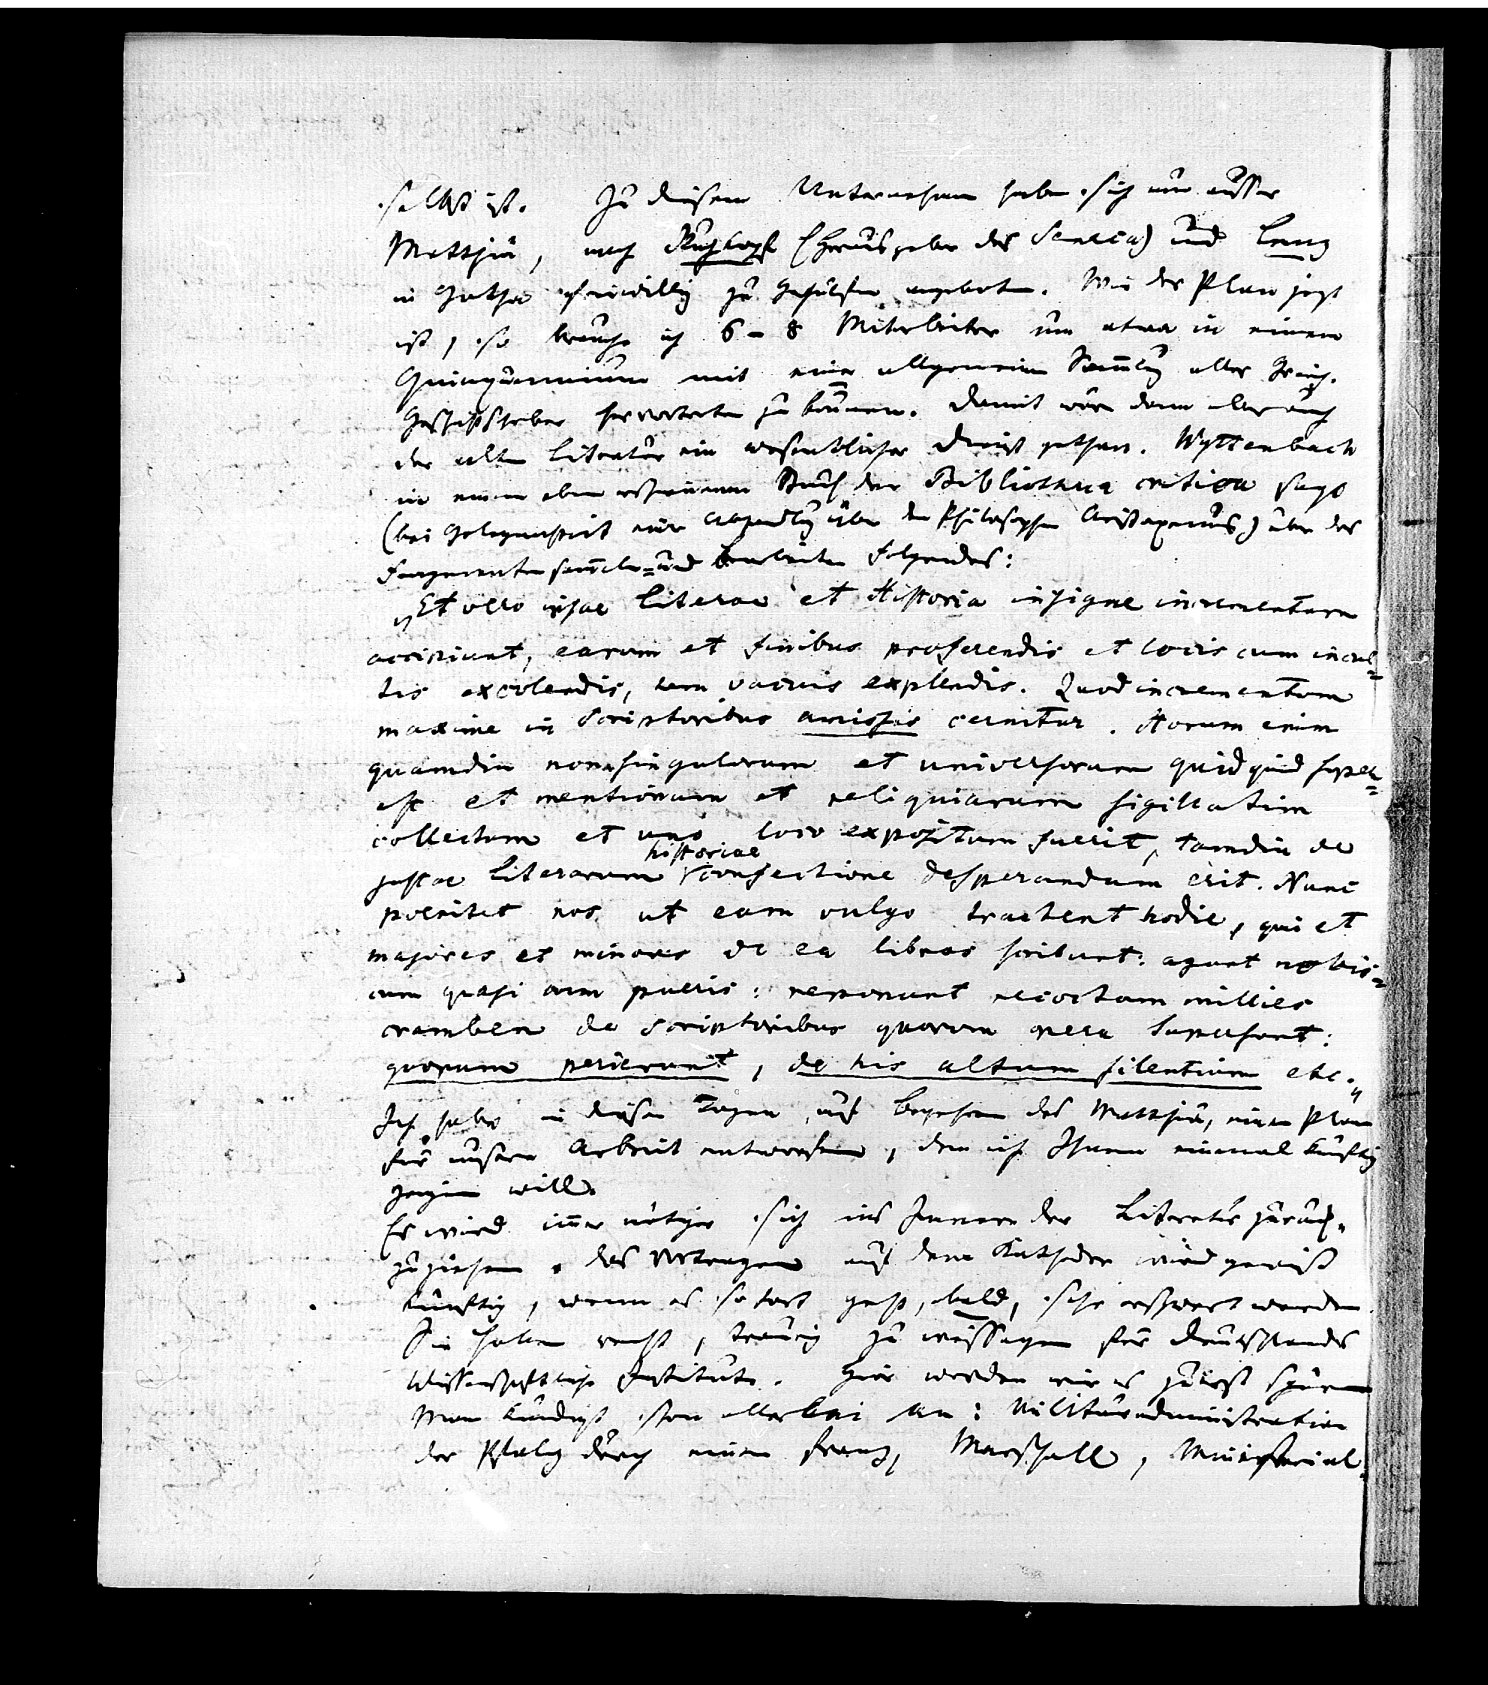 selbst ist. Zu diesem Unternehmen haben sich nun ausser
Matthiä, noch Ruhkopf (Herausgeber des Seneca) und Lenz
in Gotha freiwillig zu Gehülfen angeboten. Wie der Plan jezt
ist, so brauche ich 6–8 Mitarbeiter um etwa in einem
Quinquennium mit einer allgemeinen Sam̅lung aller Griech.
Geschichtschreiber hervortreten zu können. Damit wäre denn aber auch
der alten Literatur ein wesentlicher Dienst gethan. Wyttenbach
in einem eben erschienenen Stück der Bibliotheca critica sagt
(bei Gelegenheit einer Abhandlung über den Philosophen Aristoxenus) über das
Fragmentensam̅eln= und bearbeiten folgendes:
„Et vero ipsae literae et Historia insigne incrementum
accipiunt, earum et finibus proferendis et locis cum incul=
tis excolendis, tum vacuis explendis. Quod incrementum
maxime in scriptoribus amissis cernitur. Horum enim
quamdiu non singulorum et universorum quidquid super=
est et mentionum et reliquiarum sigillatim
collectum et uno loco expositum fuerit, tamdiu de
justae literarum historiae confectione desperandum erit. Nunc
poenitet nos, ut eam vulgo tractent hodie, qui et
majores et minores de ea libros scribunt: agunt nobis=
cum quasi cum pueris: reponunt recoctam millies
cramben de scriptoribus quorum opera supersunt:
quorum perierunt, de his altum silentium etc.“
Ich habe in diesen Tagen, auf Begehren des Matthiä, einen Plan
für unsere Arbeit entworfen, den ich Ihnen einmal künftig
zeigen will.
Es wird im̅er nötiger sich ins Innere der Literatur zurück=
zuziehen. Das Vortragen auf dem Katheder wird gewiß
künftig, wenn es so fort geht, bald, sehr erschwert werden.
Sie haben recht, traurig zu weissagen für Deutschlands
Wissenschaftliche Institute. Hier werden wir es zuerst spüren
Man kündigt schon allerlei an: Militäradministration
der Pfalz durch einen franz, Marschall, Ministerial=